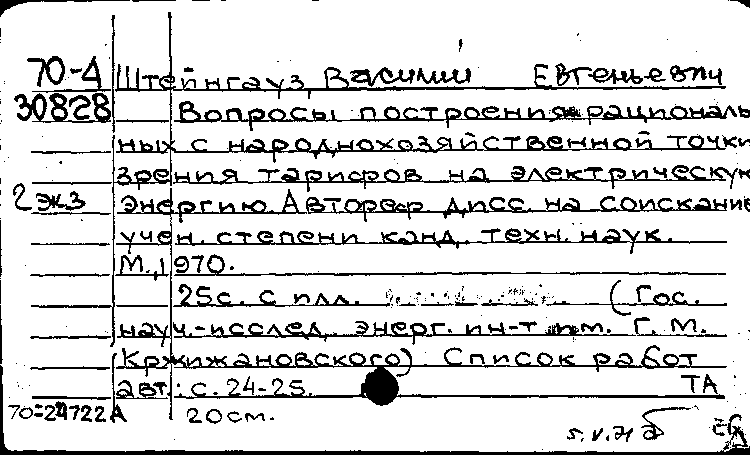 70-4 Штейнгауз, Василий Евгеньевич
30828 Вопросы построения рациональ
ных с народнохозяйственной точки
зрения тарифов на электрическую
2 экз энергию. Автореф. дисс. на соискание
учен. степени канд. техн. наук.
М., 1970.
25с. с илл. (Гос.
науч.-исслед. энерг. ин-т им. Г. М.
Кржижановского). Список работ
авт.: с. 24-25. ТА
70-24722А 20см.
5.V.71